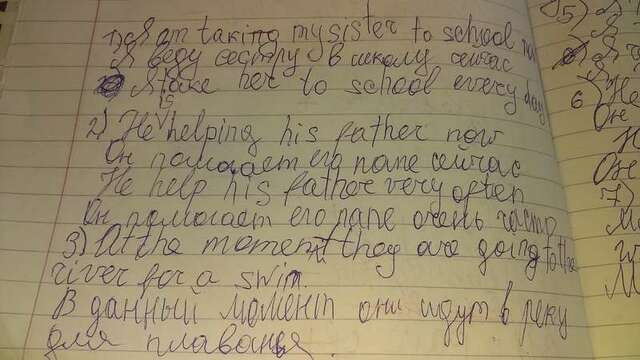 1) I am taking my sister to school now
Я веду сестру в школу сейчас
I take her to school every day
2) He is helping his father now
Он помагает его папе сейчас
He help his father very often
Он помогает его папе очень часто
3) At the moment they are going to the
river for a swim.
В данный момент они идут в реку
для плаванья.
5) Я
6) He
Он
Он
7)